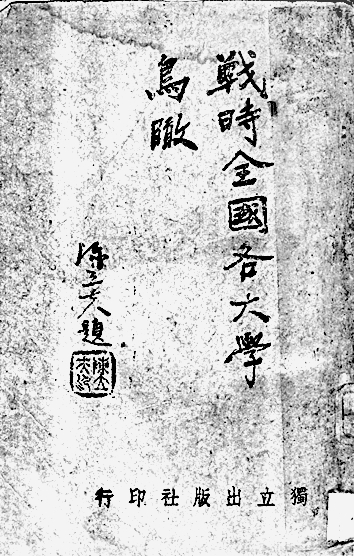 戰時全國各大學
鳥瞰
陳立夫題
獨立出版社印行